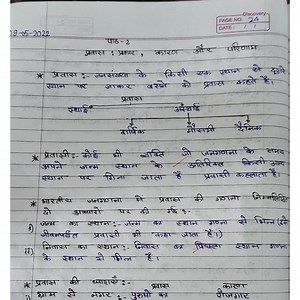 Discovery
PAGE NO. 24
DATE: / /
19-05-2022
पाठ-2
प्रवास : प्रकार, कारण और परिणाम
* प्रवास :- जनसंख्या के किसी एक स्थान से दूसरे
स्थान पर जाकर बसने को प्रवास कहते हैं।
प्रवास
स्थाई अस्थाई
वार्षिक मौसमी दैनिक
* प्रवासी :- कोई भी व्यक्ति जो जनगणना के समय
अपने जन्म स्थान के अतिरिक्त किसी अन्य
स्थान पर गिना जाता है प्रवासी कहलाता है।
* भारतीय जनगणना में प्रवास की गणना निम्नलिखित
दो आधारों पर की गई :-
i) जन्म का स्थान :- जन्म का स्थान गणना से भिन्न (इसे
जीवनपर्यंत प्रवासी भी कहा जाता है।)
ii) निवास का स्थान :- निवास का पिछला स्थान गणना
के स्थान से भिन्न है।
* प्रवास की धाराएँ :- प्रवास कारण
ग्राम से नगर : पुरुषों का रोजगार